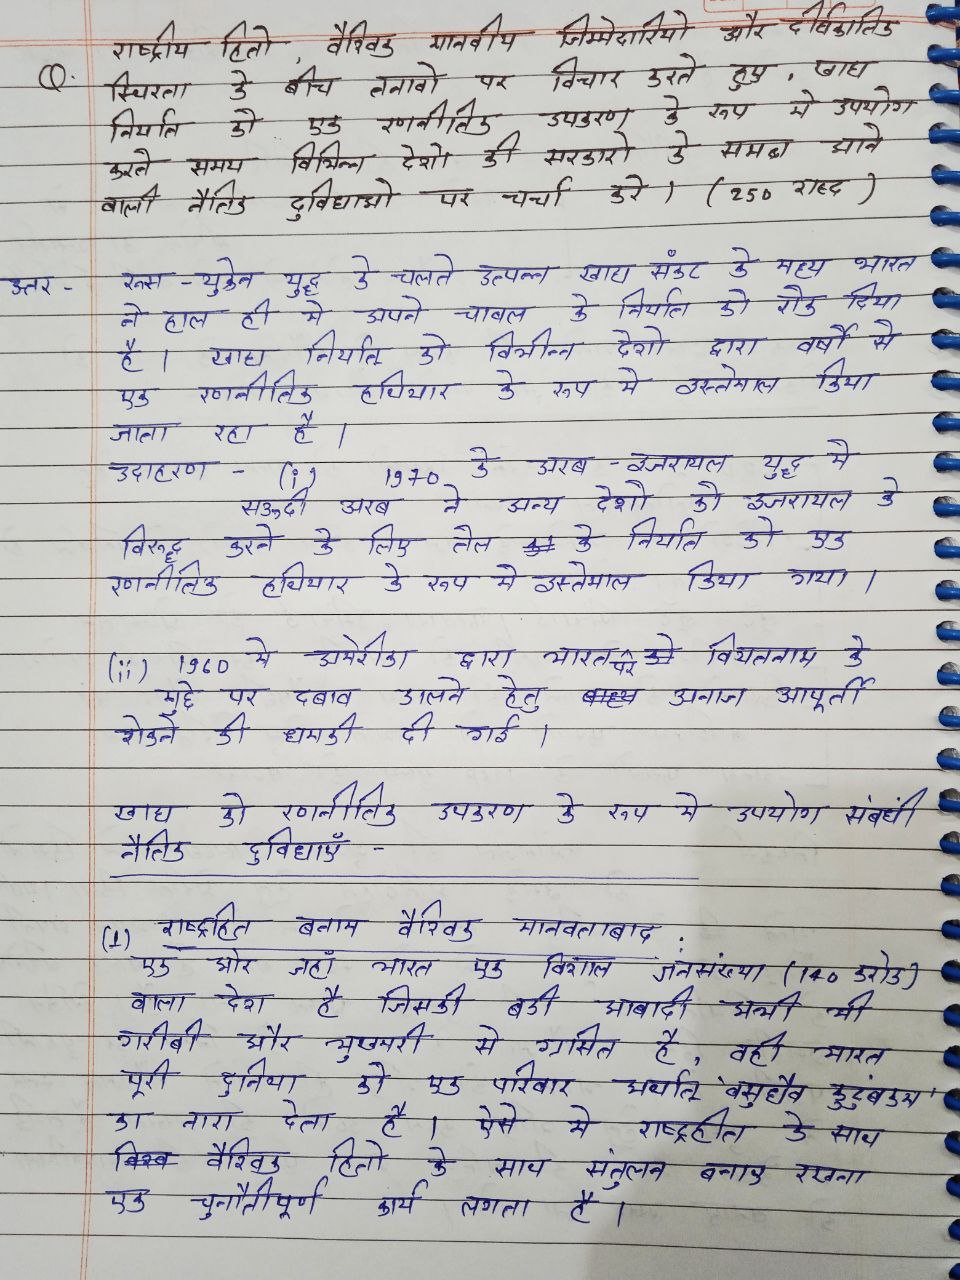 राष्ट्रीय हितो, वैश्विक मानवीय जिम्मेदारियो और दीर्घकालिक
Q. स्थिरता के बीच तनावो पर विचार करते हुए, खाद्य
निर्यात को एक रणनीतिक उपकरण के रूप मे उपयोग
करते समय विभिन्न देशो की सरकारो के समक्ष आने
वाली नैतिक दुविधाओ पर चर्चा करे। (250 शब्द)
उत्तर - रूस - युक्रेन युद्ध के चलते उत्पन्न खाद्य संकट के मध्य भारत
ने हाल ही मे अपने चावल के निर्यात को रोक दिया
है। खाद्य निर्यात को विभीन्न देशो द्वारा वर्षों से
एक रणनीतिक हथियार के रूप मे इस्तेमाल किया
जाता रहा है।
उदाहरण - (i) 1970 के अरब - इजरायल युद्ध मे
सऊदी अरब ने अन्य देशो को इजरायल के
विरुद्ध करने के लिए तेल के निर्यात को एक
रणनीतिक हथियार के रूप मे इस्तेमाल किया गया।
(ii) 1960 मे अमेरीका द्वारा भारत पर वियतनाम के
मुद्दे पर दबाव डालने हेतु अनाज आपूर्ती
रोकने की धमकी दी गई।
खाद्य को रणनीतिक उपकरण के रूप मे उपयोग संबंधी
नैतिक दुविधाएँ -
(1) राष्ट्रहित बनाम वैश्विक मानवतावाद :
एक ओर जहाँ भारत एक विशाल जनसंख्या (140 करोड)
वाला देश है जिसकी बडी आबादी अभी भी
गरीबी और भुखमरी से ग्रासित है, वही भारत
पूरी दुनिया को एक परिवार अर्थात् 'वसुधैव कुटुंबकम'
का नारा देता है। ऐसे मे राष्ट्रहीत के साथ
वैश्विक हितो के साथ संतुलन बनाए रखना
एक चुनौतीपूर्ण कार्य लगता है।